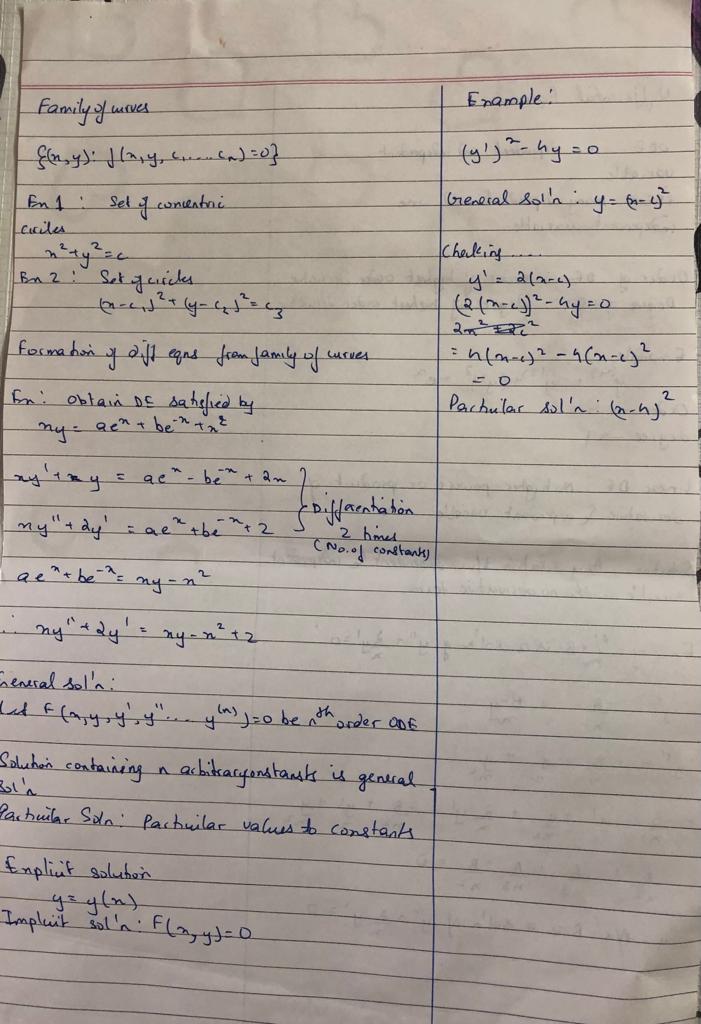 Family of curves
{(x,y): f(x,y, c₁....cₙ)=0}
Ex 1 : Set of concentric
circles
x²+y²=c
Ex 2 : Set of circles
(x-c₁)²+(y-c₂)²=c₃
Formation of diff eqns from family of curves
Ex: obtain DE satisfied by
xy = aeˣ + be⁻ˣ + x²
xy'+ y = aeˣ - be⁻ˣ + 2x
xy''+ 2y' = aeˣ + be⁻ˣ + 2
} Differentiation
2 times
(No. of constants)
aeˣ + be⁻ˣ = xy - x²
∴ xy'' + 2y' = xy - x² + 2
General sol'n:
Let F(x,y,y',y''... y⁽ⁿ⁾)=0 be nᵗʰ order ODE
Solution containing n arbitraryonstansts is general
sol'n
Particular Soln: Particular values to constants
Explicit solution
y = y(x)
Implicit sol'n: F(x,y)=0
Example:
(y')² - 4y = 0
General sol'n : y = (x-c)²
Checking ....
y' = 2(x-c)
(2(x-c))² - 4y = 0
= 4(x-c)² - 4(x-c)²
= 0
Particular sol'n : (x-4)²